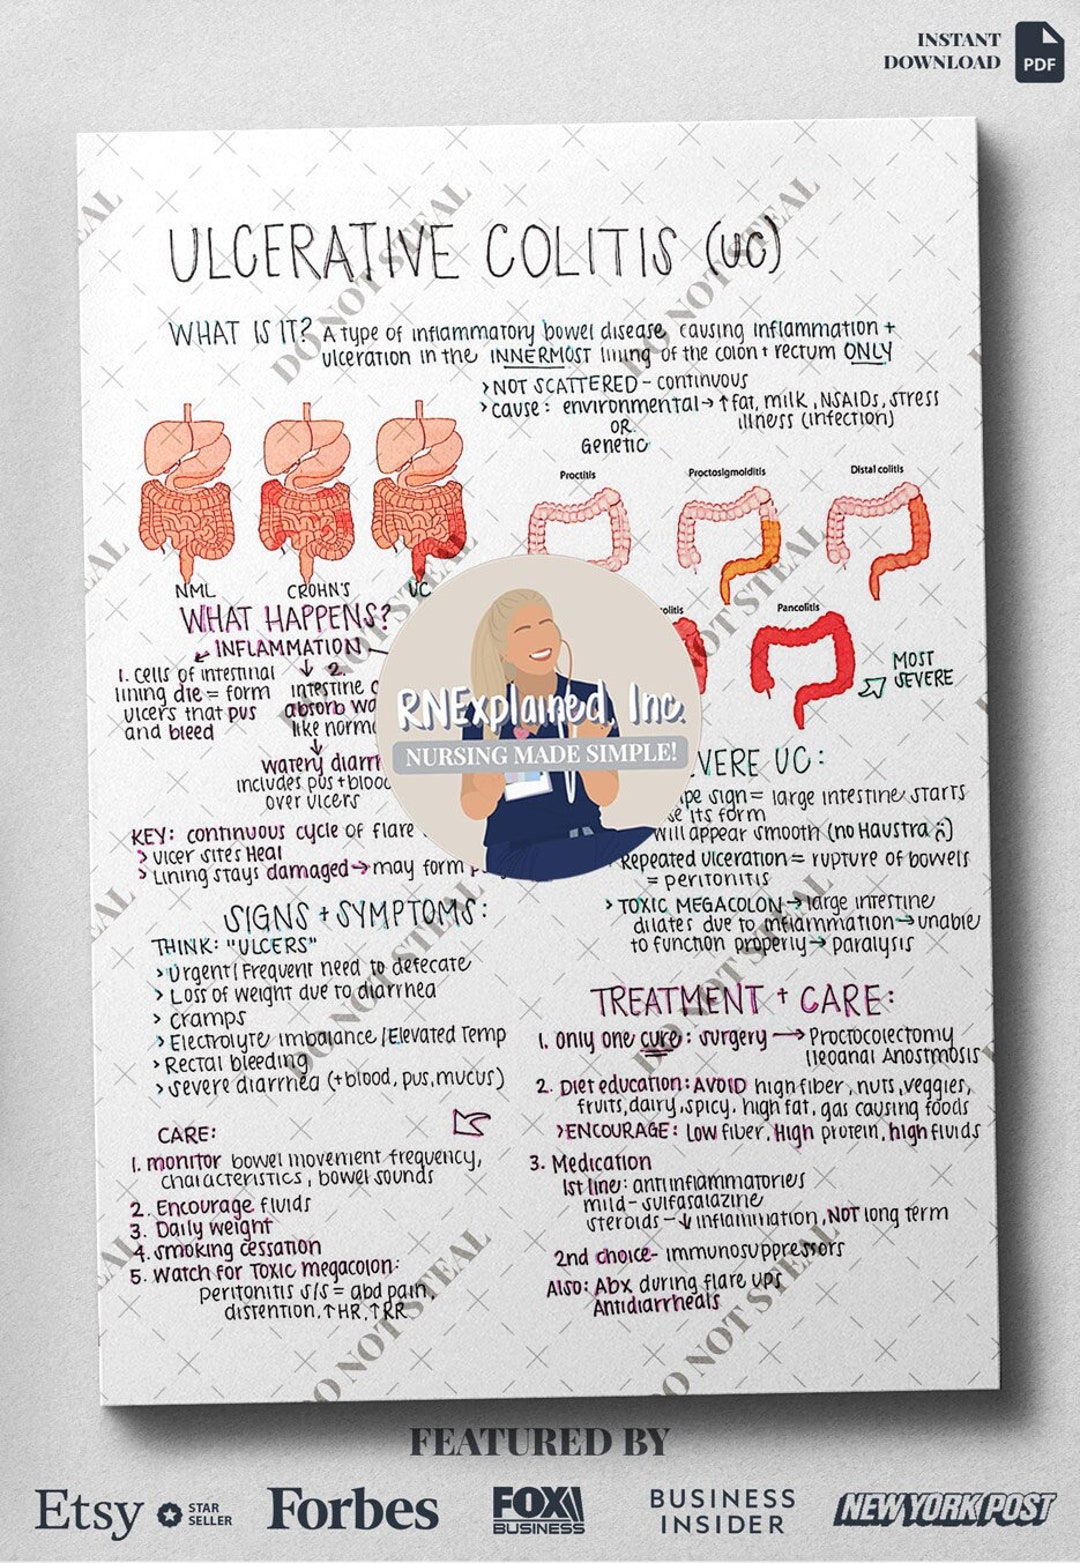 INSTANT
DOWNLOAD
PDF
ULCERATIVE COLITIS (UC)
WHAT IS IT? A type of inflammatory bowel disease causing inflammation +
ulceration in the INNERMOST lining of the colon + rectum ONLY
> NOT SCATTERED - continuous
> cause: environmental → ↑ fat, milk, NSAIDs, stress
illness (infection)
OR
Genetic
NML
CROHN'S
UC
Proctitis
Proctosigmoiditis
Distal colitis
Pancolitis
MOST
SEVERE
WHAT HAPPENS?
INFLAMMATION
1. Cells of intestinal
lining die = form
ulcers that pus
and bleed
2.
intestine
absorb
like
watery
includes pus + blood
over ulcers
KEY: continuous cycle of flare
> ulcer sites Heal
> Lining stays damaged → may form
SIGNS + SYMPTOMS:
THINK: "ULCERS"
> Urgent/Frequent need to defecate
> Loss of weight due to diarrhea
> Cramps
> Electrolyte imbalance/Elevated Temp
> Rectal bleeding
> Severe diarrhea (+blood, pus, mucus)
CARE:
1. monitor bowel movement frequency,
characteristics, bowel sounds
2. Encourage fluids
3. Daily weight
4. smoking cessation
5. Watch for Toxic megacolon:
peritonitis s/s = abd pain,
distention, ↑HR, ↑RR
UC:
sign = large intestine starts
its form
will appear smooth (no Haustra :()
Repeated ulceration = rupture of bowels
= peritonitis
> TOXIC MEGACOLON → large intestine
dilates due to inflammation → unable
to function properly → paralysis
TREATMENT + CARE:
1. Only one cure: surgery → Proctocolectomy
Ileoanal Anostmosis
2. Diet education: AVOID high fiber, nuts, veggies,
fruits, dairy, spicy, high fat, gas causing foods
> ENCOURAGE: Low fiber, High protein, high fluids
3. Medication
1st line: antiinflammatories
mild - sulfasalazine
steroids - ↓ inflammation, NOT long term
2nd choice - immunosuppressors
Also: Abx during flare ups
Antidiarrheals
RNExplained, Inc.
NURSING MADE SIMPLE!
DO NOT STEAL
FEATURED BY
Etsy STAR
SELLER
Forbes
FOX
BUSINESS
BUSINESS
INSIDER
NEW YORK POST